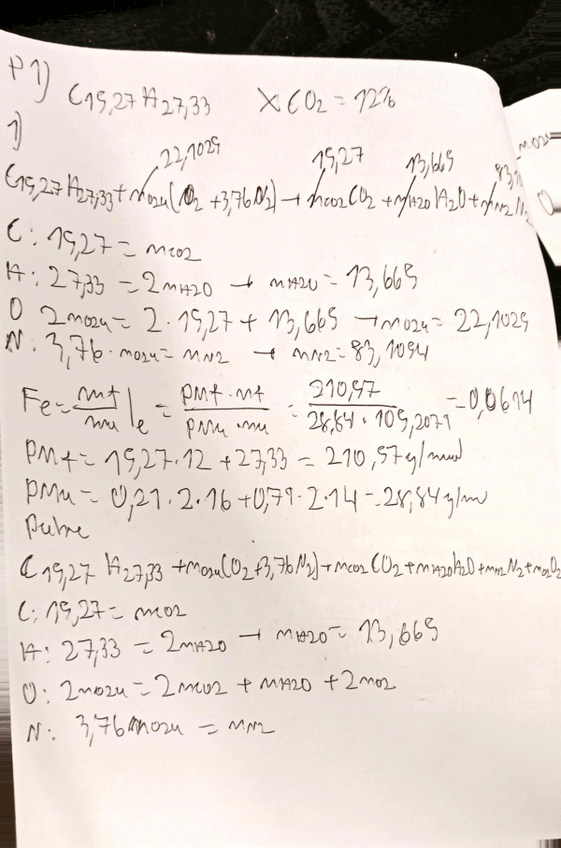 P1) C15,27 H27,33 XCO2 = 12%
1)
22,1025 15,27 13,665 83,1
C15,27H27,33 + mO2u(O2 + 3,76N2) → nCO2 CO2 + mH2O H2O + mN2 N
C: 15,27 = mCO2
H: 27,33 = 2mH2O → mH2O = 13,665
O 2mO2u = 2·15,27 + 13,665 → mO2u = 22,1025
N: 3,76·mO2u = mN2 → mN2 = 83,1054
Fe = mf/mu|e = PMf·mf/PMu·mu = 210,57/28,84·105,2079 = 0,0694
PMf = 15,27·12 + 27,33 = 210,57 g/mol
PMu = 0,21·2·16 + 0,79·2·14 = 28,84 g/m
C15,27 H27,33 + mO2u(O2 + 3,76N2) → mCO2 CO2 + mH2O H2O + mN2 N2 + mO2 O2
C: 15,27 = mCO2
H: 27,33 = 2mH2O → mH2O = 13,665
O: 2mO2u = 2mCO2 + mH2O + 2mO2
N: 3,76mO2u = mN2